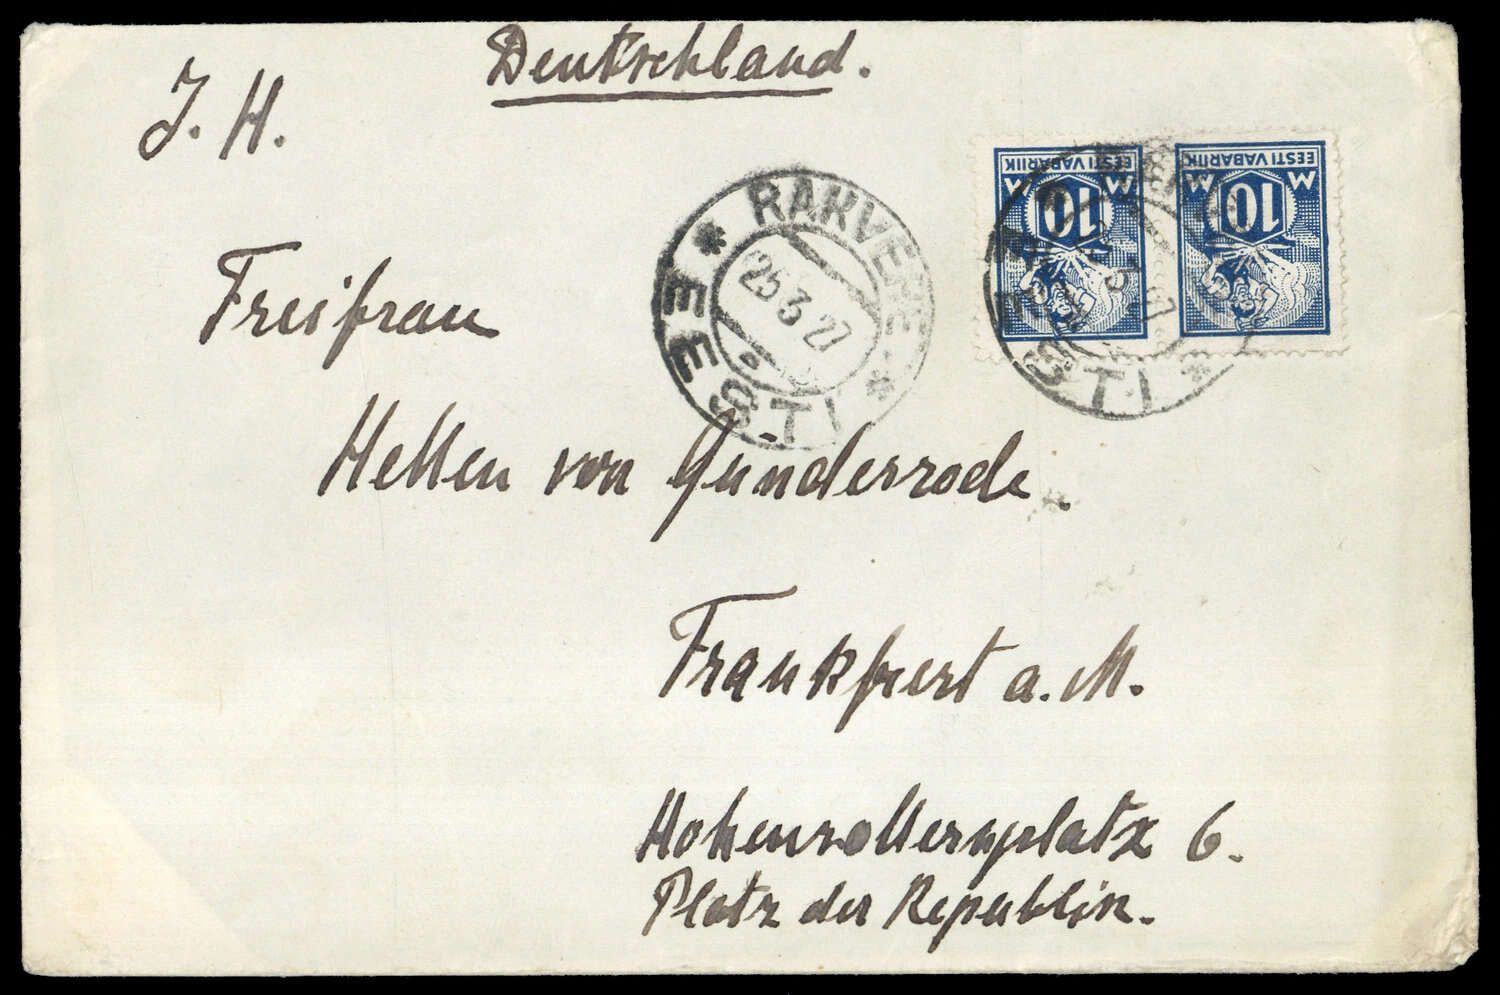 Deutschland.
J. H.
EESTI VABARIIK
M 10 M
EESTI VABARIIK
M 10 M
RAKVERE
25 3 27
EESTI
EESTI
Freifrau
Hellen von Günderrode.
Frankfurt a. M.
Hohenzollernplatz 6.
Platz der Republik.